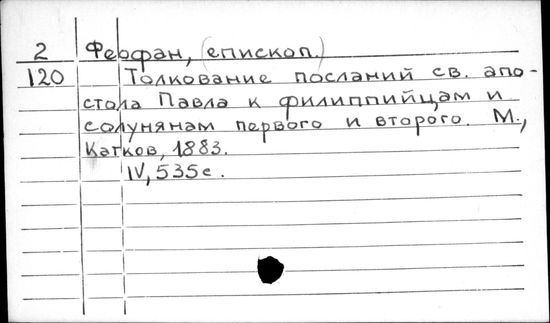 2 Феофан, (епископ.)
120 Толкование посланий св. апо-
стола Павла к филиппийцам и
солунянам первого и второго. М.,
Катков, 1883.
IV, 535с.